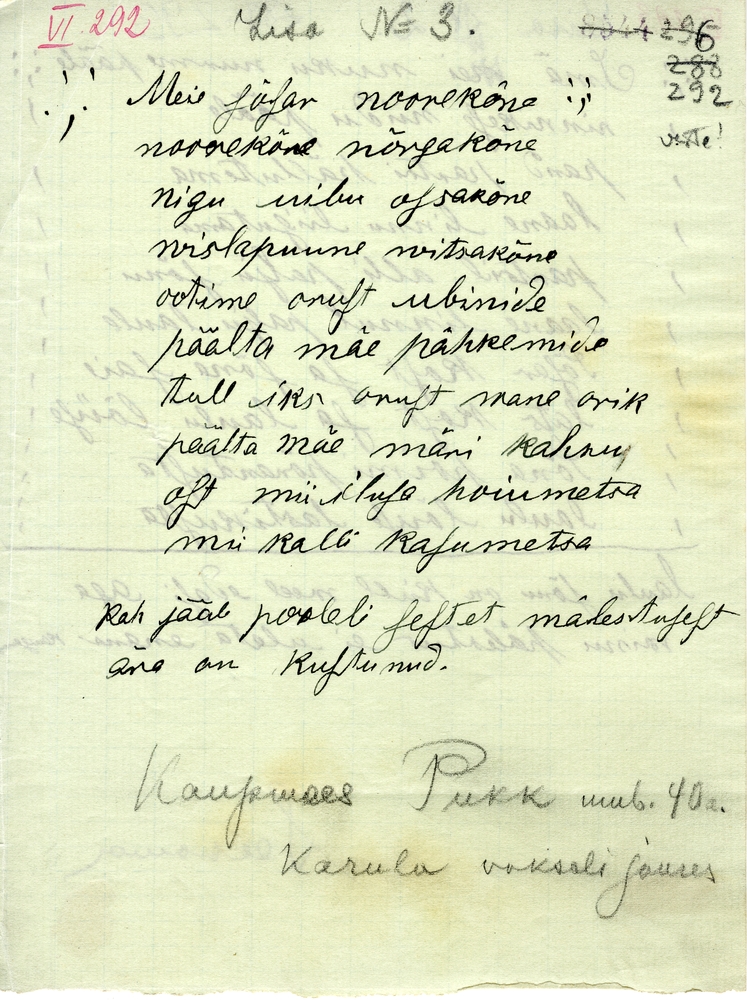 VI 292
Lisa № 3.
296
288
292
võtte!
Meie sösar nooreköne
nooreköne nörgaköne
nigu uibu ossaköne
wislapuune witsaköne
ootime orust ubinide
päälta mäe pähkemide
tull iks orust mane orik
päälta mäe märi kahru
ost mii ilusa hoiumetsa
mii kalli kasumetsa
Kah jääb pooleli sestet mälestusest
ära on kustunud.
Kaupmees Pukk umb. 40 a.
Karula voksali juures